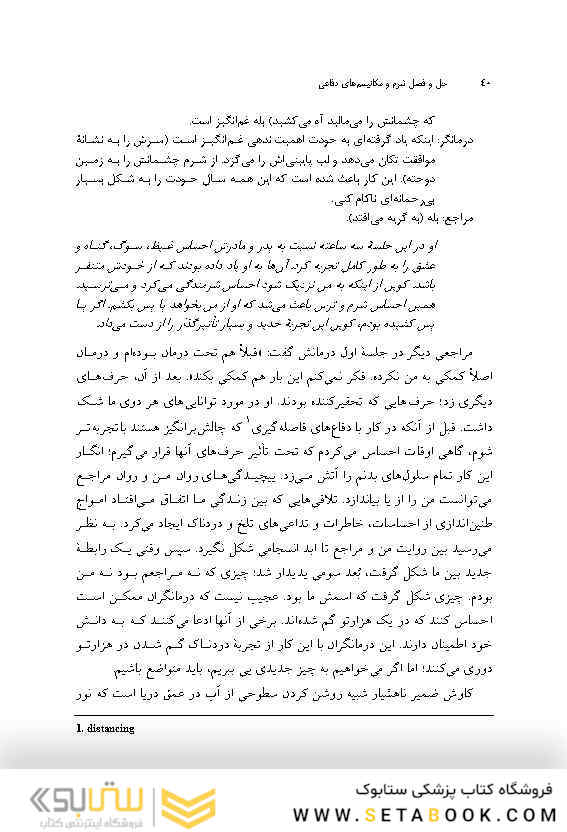 ۴۰ حل و فصل شرم و مکانیسم‌های دفاعی
که چشمانش را می‌مالید آه می‌کشید) بله غم‌انگیز است.
درمانگر: اینکه یاد گرفته‌ای به خودت اهمیت ندهی غم‌انگیز است (سرش را به نشانهٔ
موافقت تکان می‌دهد و لب پایینی‌اش را می‌گزد. از شرم چشمانش را به زمین
دوخته). این کار باعث شده است که این همه سال خودت را به شکل بسیار
بی‌رحمانه‌ای ناکام کنی.
مراجع: بله (به گریه می‌افتد).
او در این جلسهٔ سه ساعته نسبت به پدر و مادرش احساس غیظ، سوگ، گناه و
عشق را به طور کامل تجربه کرد. آن‌ها به او یاد داده بودند که از خودش متنفر
باشد. کوین از اینکه به من نزدیک شود احساس شرمندگی می‌کرد و می‌ترسید.
همین احساس شرم و ترس باعث می‌شد که او از من بخواهد پا پس بکشم. اگر پا
پس کشیده بودم، کوین این تجربهٔ جدید و بسیار تأثیرگذار را از دست می‌داد.
مراجعی دیگر در جلسهٔ اول درمانش گفت: «قبلاً هم تحت درمان بوده‌ام و درمان
اصلاً کمکی به من نکرده. فکر نمی‌کنم این بار هم کمکی بکند». بعد از آن، حرف‌های
دیگری زد؛ حرف‌هایی که تحقیرکننده بودند. او در مورد توانایی‌های هر دوی ما شک
داشت. قبل از آنکه در کار با دفاع‌های فاصله‌گیری۱ که چالش‌برانگیز هستند باتجربه‌تر
شوم، گاهی اوقات احساس می‌کردم که تحت تأثیر حرف‌های آنها قرار می‌گیرم؛ انگار
این کار تمام سلول‌های بدنم را آتش می‌زد. پیچیدگی‌های روان من و روان مراجع
می‌توانست من را از پا بیاندازد. تلاقی‌هایی که بین زندگی ما اتفاق می‌افتاد امواج
طنین‌اندازی از احساسات، خاطرات و تداعی‌های تلخ و دردناک ایجاد می‌کرد. به نظر
می‌رسید بین روایت من و مراجع تا ابد انسجامی شکل نگیرد. سپس وقتی یک رابطهٔ
جدید بین ما شکل گرفت، بُعد سومی پدیدار شد؛ چیزی که نه مراجعم بود نه من
بودم. چیزی شکل گرفت که اسمش ما بود. عجیب نیست که درمانگران ممکن است
احساس کنند که در یک هزارتو گم شده‌اند. برخی از آنها ادعا می‌کنند که به دانش
خود اطمینان دارند. این درمانگران با این کار از تجربهٔ دردناک گم شدن در هزارتو
دوری می‌کنند؛ اما اگر می‌خواهیم به چیز جدیدی پی ببریم، باید متواضع باشیم.
کاوش ضمیر ناهشیار شبیه روشن کردن سطوحی از آب در عمق دریا است که نور
1. distancing
فروشگاه کتاب پزشکی ستابوک
WWW.SETABOOK.COM
ستابوک
فروشگاه اینترنتی کتاب